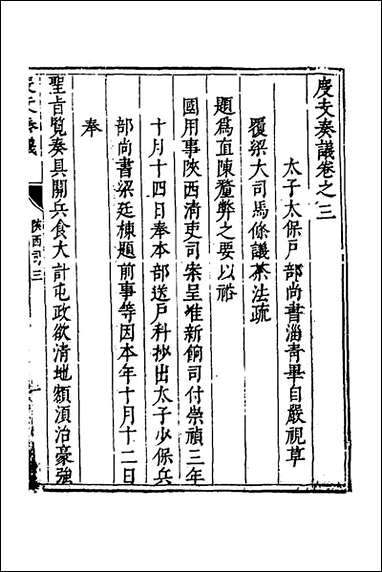 度支奏議卷之三
太子太保戶部尚書淄青畢自嚴視草
覆梁大司馬條議茶法疏
題爲直陳釐弊之要以裕
國用事陝西清吏司案呈准新餉司付崇禎三年
十月十四日奉本部送戶科抄出太子少保兵
部尚書梁廷棟題前事等因本年十月十二日
奉
聖旨覽奏具關兵食大計屯政欲清地額須治豪強
度支奏議
陝西司三